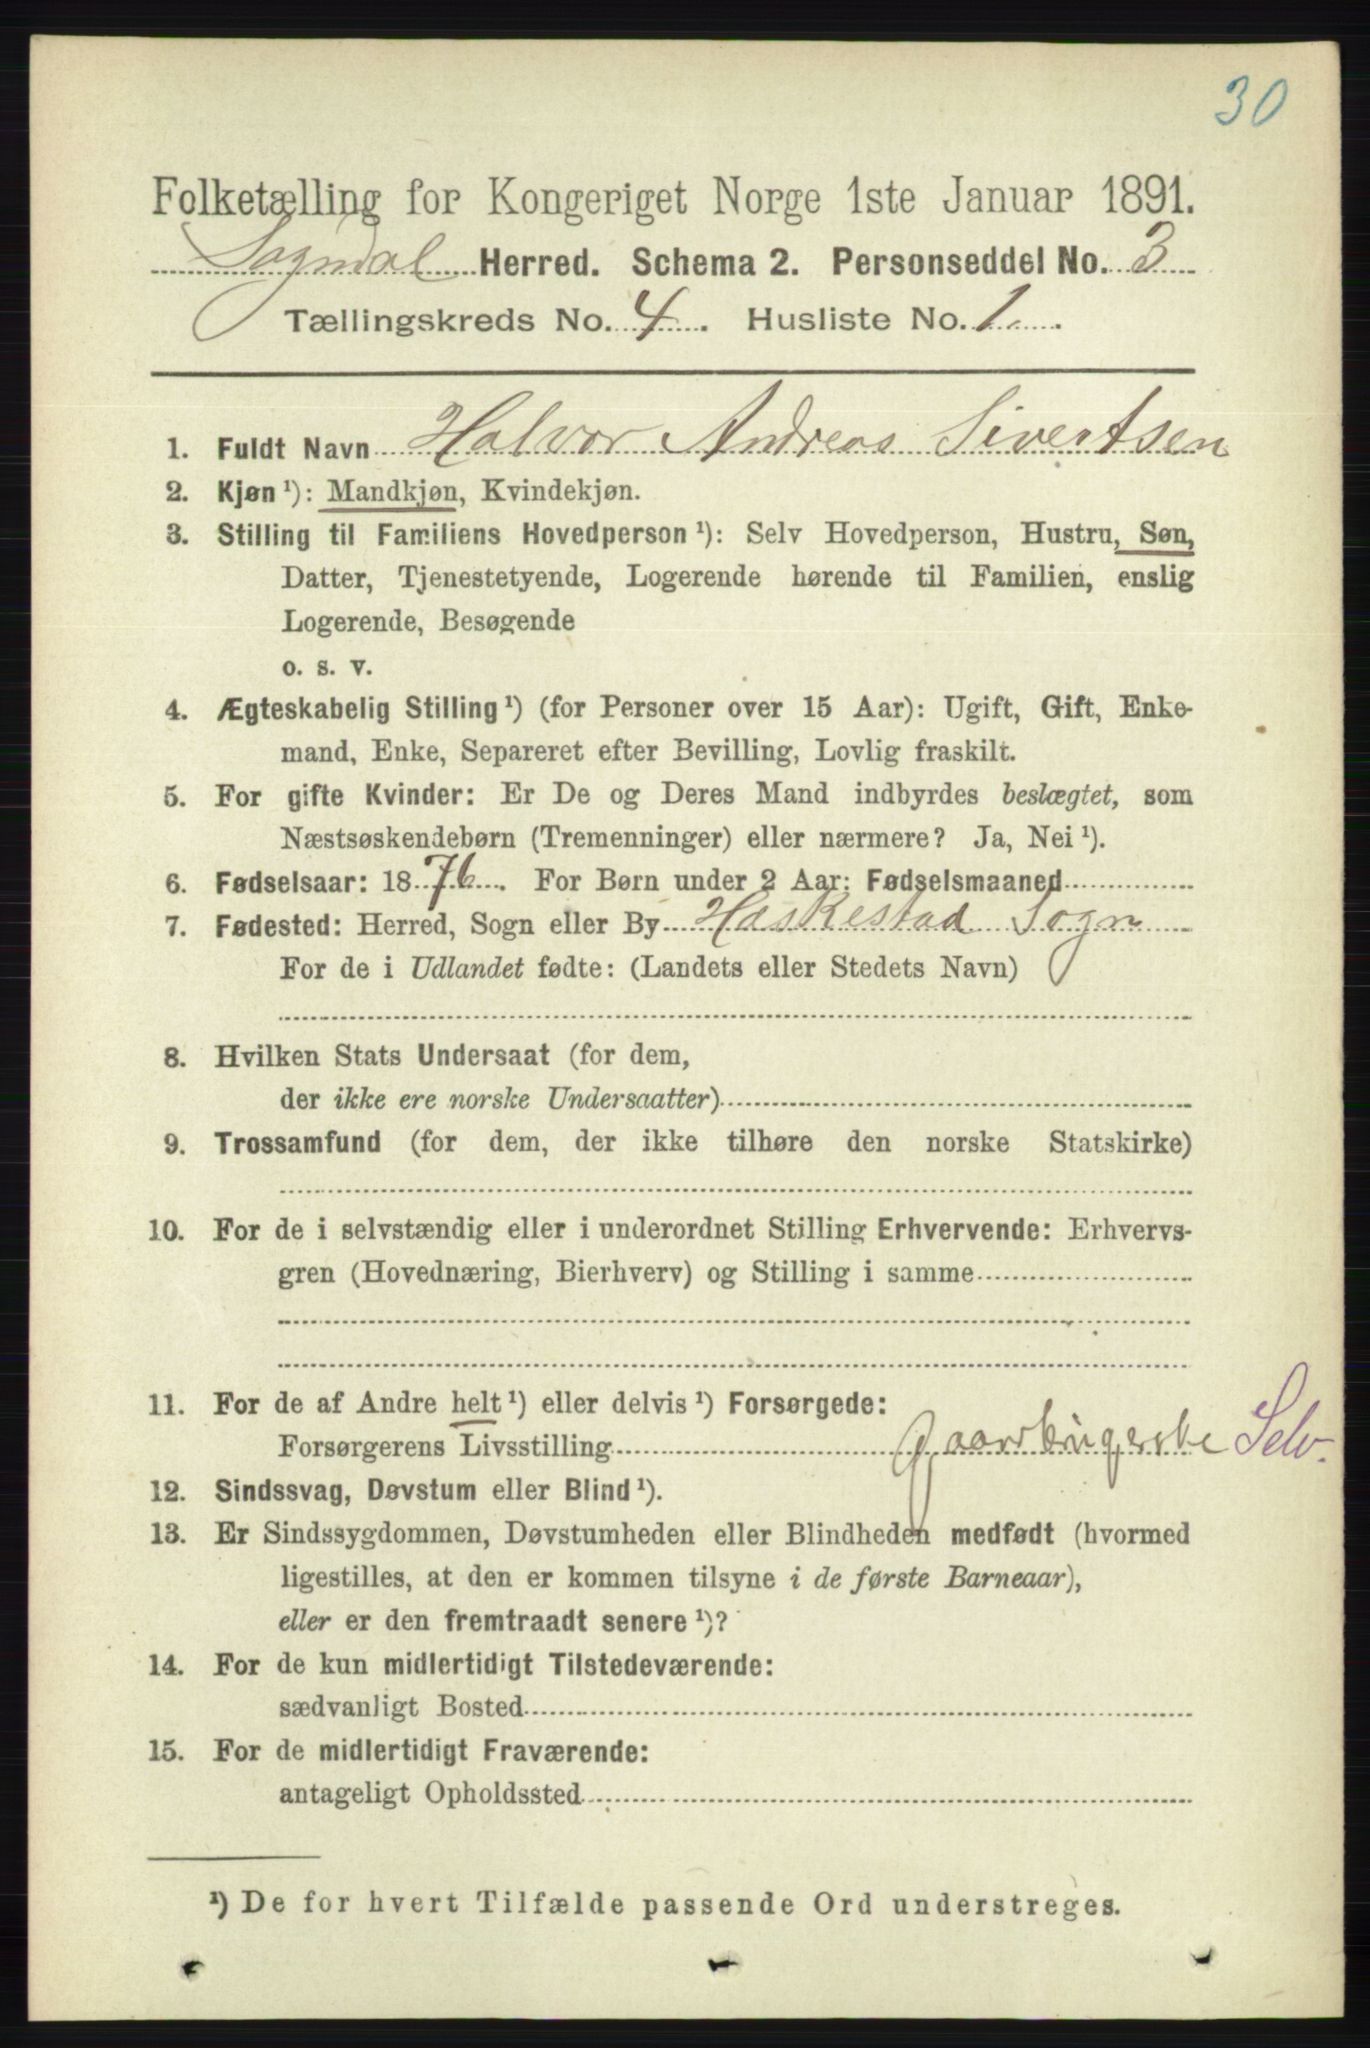 30
Folketælling for Kongeriget Norge 1ste Januar 1891.
Sogndal Herred. Schema 2. Personseddel No. 3
Tællingskreds No. 4. Husliste No. 1.
1. Fuldt Navn Halvor Andreas Sivertsen
2. Kjøn ¹): Mandkjøn, Kvindekjøn.
3. Stilling til Familiens Hovedperson ¹): Selv Hovedperson, Hustru, Søn,
Datter, Tjenestetyende, Logerende hørende til Familien, enslig
Logerende, Besøgende
o. s. v.
4. Ægteskabelig Stilling ¹) (for Personer over 15 Aar): Ugift, Gift, Enke-
mand, Enke, Separeret efter Bevilling, Lovlig fraskilt.
5. For gifte Kvinder: Er De og Deres Mand indbyrdes beslægtet, som
Næstsøskendebørn (Tremenninger) eller nærmere? Ja, Nei ¹).
6. Fødselsaar: 1876. For Børn under 2 Aar: Fødselsmaaned
7. Fødested: Herred, Sogn eller By Haskestad Sogn
For de i Udlandet fødte: (Landets eller Stedets Navn)
8. Hvilken Stats Undersaat (for dem,
der ikke ere norske Undersaatter)
9. Trossamfund (for dem, der ikke tilhøre den norske Statskirke)
10. For de i selvstændig eller i underordnet Stilling Erhvervende: Erhvervs-
gren (Hovednæring, Bierhverv) og Stilling i samme
11. For de af Andre helt ¹) eller delvis ¹) Forsørgede:
Forsørgerens Livsstilling Gaardbrugerske Selv.
12. Sindssvag, Døvstum eller Blind ¹).
13. Er Sindssygdommen, Døvstumheden eller Blindheden medfødt (hvormed
ligestilles, at den er kommen tilsyne i de første Barneaar),
eller er den fremtraadt senere ¹)?
14. For de kun midlertidigt Tilstedeværende:
sædvanligt Bosted
15. For de midlertidigt Fraværende:
antageligt Opholdssted
¹) De for hvert Tilfælde passende Ord understreges.